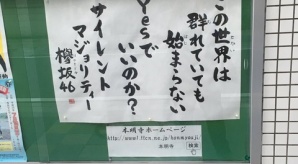 この世界は
群れていても
始まらない
Yesで
いいのか?
サイレント
マジョリティー
欅坂46
本明寺ホームページ
検索